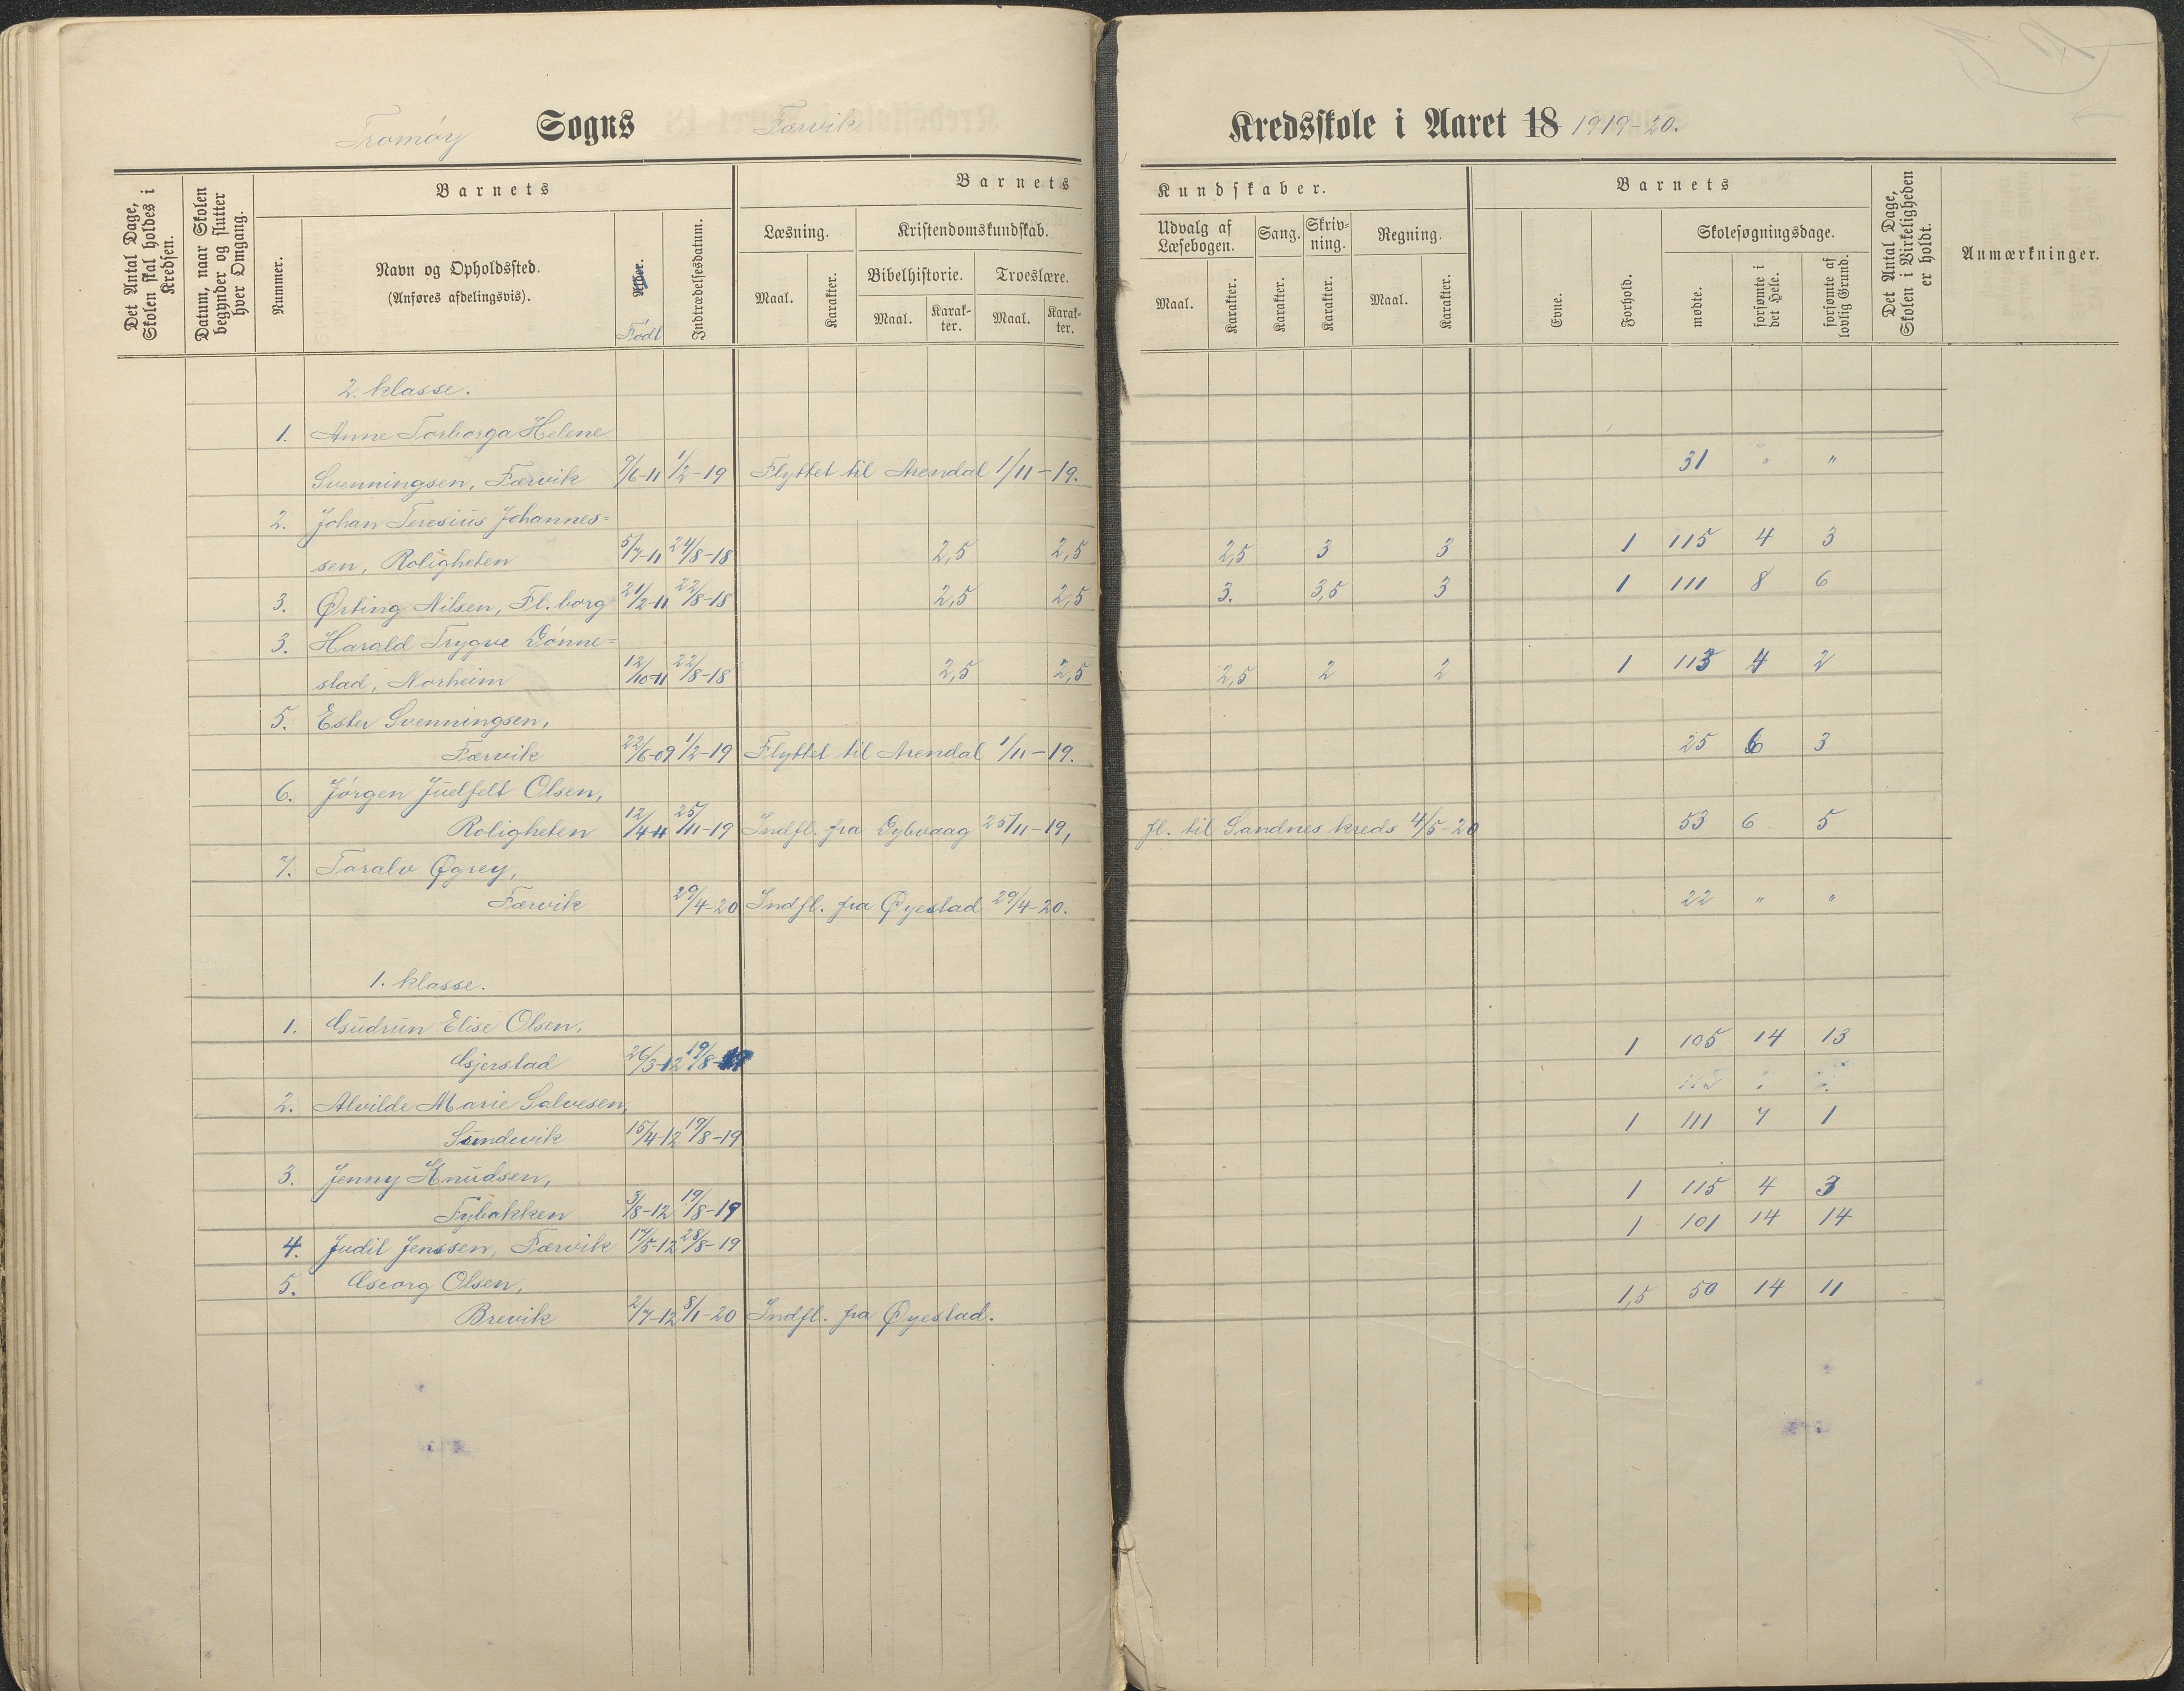 Tromöy Sogns Færvik Kredsskole i Aaret 18 1919-20.
Det Antal Dage, Skolen skal holdes i Kredsen.
Datum, naar Skolen begynder og slutter hver Omgang.
Barnets
Nummer.
Navn og Opholdssted.
(Anføres afdelingsvis).
Alder.
Född
Indtrædelsesdatum.
Barnets Kundskaber.
Læsning.
Maal.
Karakter.
Kristendomskundskab.
Bibelhistorie.
Maal.
Karakter.
Troeslære.
Maal.
Karakter.
Udvalg af Læsebogen.
Maal.
Karakter.
Sang.
Karakter.
Skrivning.
Karakter.
Regning.
Maal.
Karakter.
Barnets
Evne.
Forhold.
Skolesøgningsdage.
mødte.
forsømte i det Hele.
forsømte af lovlig Grund.
Det Antal Dage, Skolen i Virkeligheden er holdt.
Anmærkninger.
2. klasse.
1. Anne Torborga Helene
Svenningsen, Færvik 9/6-11 1/2-19 Flyttet til Arendal 1/11-19. 31 " "
2. Johan Teresius Johannes=
sen, Roligheten 5/7-11 24/8-18 2,5 2,5 2,5 3 3 1 115 4 3
3. Ørting Nilsen, Fl. borg 21/2-11 22/8-18 2,5 2,5 3. 3,5 3 1 111 8 6
3. Harald Trygve Dønne=
stad, Norheim 12/10-11 22/8-18 2,5 2,5 2,5 2 2 1 113 4 2
5. Ester Svenningsen,
Færvik 22/6-09 1/2-19 Flyttet til Arendal 1/11-19. 25 6 3
6. Jørgen Juelfelt Olsen,
Roligheten 12/4-11 25/11-19 Indfl. fra Dybvaag 25/11-19, fl. til Sandnes kreds 4/5-20 53 6 5
7. Toralv Øgrey,
Færvik 29/4-20 Indfl. fra Øyestad 29/4-20. 22 " "
1. klasse.
1. Gudrun Elise Olsen,
Gjerstad 26/3-12 19/8-19 1 105 14 13
2. Alvilde Marie Salvesen,
Sandvik 15/4-12 19/8-19 1 111 7 1
3. Jenny Knudsen,
Fybakken 3/8-12 19/8-19 1 115 4 3
4. Judit Jenssen, Færvik 17/5-12 28/8-19 1 101 14 14
5. Georg Olsen,
Brevik 2/7-12 8/1-20 Indfl. fra Øyestad. 1,5 50 14 11